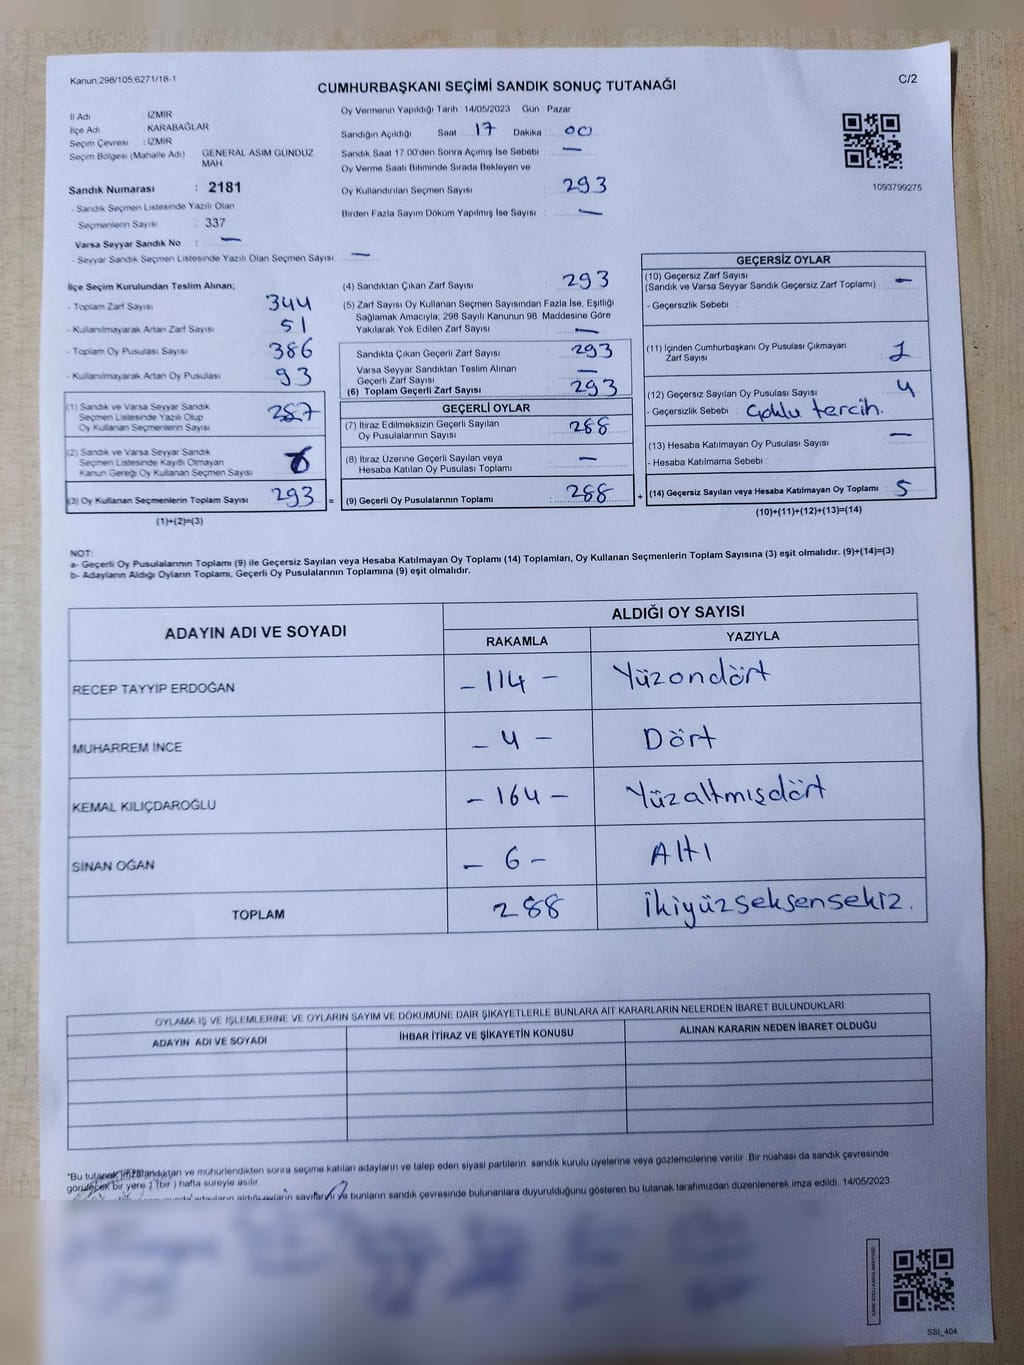 Kanun:298/105;6271/18-1
C/2
CUMHURBAŞKANI SEÇİMİ SANDIK SONUÇ TUTANAĞI
İl Adı : İZMİR
İlçe Adı : KARABAĞLAR
Seçim Çevresi : İZMİR
Seçim Bölgesi (Mahalle Adı) : GENERAL ASIM GÜNDÜZ MAH.
Sandık Numarası : 2181
- Sandık Seçmen Listesinde Yazılı Olan
Seçmenlerin Sayısı : 337
Varsa Seyyar Sandık No : —
- Seyyar Sandık Seçmen Listesinde Yazılı Olan Seçmen Sayısı : —
Oy Vermenin Yapıldığı Tarih 14/05/2023 Gün Pazar
Sandığın Açıldığı Saat : 17 Dakika : 00
Sandık Saat 17.00'den Sonra Açımış İse Sebebi : —
Oy Verme Saati Bitiminde Sırada Bekleyen ve
Oy Kullandırılan Seçmen Sayısı : 293
Birden Fazla Sayım Döküm Yapılmış İse Sayısı : —
1093799275
İlçe Seçim Kurulundan Teslim Alınan;
- Toplam Zarf Sayısı : 344
- Kullanılmayarak Artan Zarf Sayısı : 51
- Toplam Oy Pusulası Sayısı : 386
- Kullanılmayarak Artan Oy Pusulası : 93
(1) Sandık ve Varsa Seyyar Sandık
Seçmen Listesinde Yazılı Olup
Oy Kullanan Seçmenlerin Sayısı : 287
(2) Sandık ve Varsa Seyyar Sandık
Seçmen Listesinde Kayıtlı Olmayan
Kanun Gereği Oy Kullanan Seçmen Sayısı : 6
(3) Oy Kullanan Seçmenlerin Toplam Sayısı : 293 =
(1)+(2)=(3)
(4) Sandıktan Çıkan Zarf Sayısı : 293
(5) Zarf Sayısı Oy Kullanan Seçmen Sayısından Fazla İse, Eşitliği
Sağlamak Amacıyla, 298 Sayılı Kanunun 98. Maddesine Göre
Yakılarak Yok Edilen Zarf Sayısı : —
Sandıkta Çıkan Geçerli Zarf Sayısı : 293
Varsa Seyyar Sandıktan Teslim Alınan
Geçerli Zarf Sayısı : —
(6) Toplam Geçerli Zarf Sayısı : 293
GEÇERLİ OYLAR
(7) İtiraz Edilmeksizin Geçerli Sayılan
Oy Pusulalarının Sayısı : 288
(8) İtiraz Üzerine Geçerli Sayılan veya
Hesaba Katılan Oy Pusulası Toplamı : —
(9) Geçerli Oy Pusulalarının Toplamı : 288 +
GEÇERSİZ OYLAR
(10) Geçersiz Zarf Sayısı
(Sandık ve Varsa Seyyar Sandık Geçersiz Zarf Toplamı) : —
- Geçersizlik Sebebi :
(11) İçinden Cumhurbaşkanı Oy Pusulası Çıkmayan
Zarf Sayısı : 1
(12) Geçersiz Sayılan Oy Pusulası Sayısı : 4
- Geçersizlik Sebebi : Çoklu tercih.
(13) Hesaba Katılmayan Oy Pusulası Sayısı : —
- Hesaba Katılmama Sebebi :
(14) Geçersiz Sayılan veya Hesaba Katılmayan Oy Toplamı : 5
(10)+(11)+(12)+(13)=(14)
NOT:
a- Geçerli Oy Pusulalarının Toplamı (9) ile Geçersiz Sayılan veya Hesaba Katılmayan Oy Toplamı (14) Toplamları, Oy Kullanan Seçmenlerin Toplam Sayısına (3) eşit olmalıdır. (9)+(14)=(3)
b- Adayların Aldığı Oyların Toplamı, Geçerli Oy Pusulalarının Toplamına (9) eşit olmalıdır.
ADAYIN ADI VE SOYADI
ALDIĞI OY SAYISI
RAKAMLA YAZIYLA
RECEP TAYYİP ERDOĞAN - 114 - Yüzondört
MUHARREM İNCE - 4 - Dört
KEMAL KILIÇDAROĞLU - 164 - Yüzaltmışdört
SİNAN OĞAN - 6 - Altı
TOPLAM 288 İkiyüzseksensekiz.
OYLAMA İŞ VE İŞLEMLERİNE VE OYLARIN SAYIM VE DÖKÜMÜNE DAİR ŞİKAYETLERLE BUNLARA AİT KARARLARIN NELERDEN İBARET BULUNDUKLARI
ADAYIN ADI VE SOYADI İHBAR İTİRAZ VE ŞİKAYETİN KONUSU ALINAN KARARIN NEDEN İBARET OLDUĞU
*Bu tutanak imzalandıktan ve mühürlendikten sonra seçime katılan adayların ve talep eden siyasi partilerin sandık kurulu üyelerine veya gözlemcilerine verilir. Bir nüshası da sandık çevresinde
görülecek bir yere 1 (bir) hafta süreyle asılır.
adayların aldığı oyların sayılarını ve bunların sandık çevresinde bulunanlara duyurulduğunu gösteren bu tutanak tarafımızdan düzenlenerek imza edildi. 14/05/2023
SSI_404